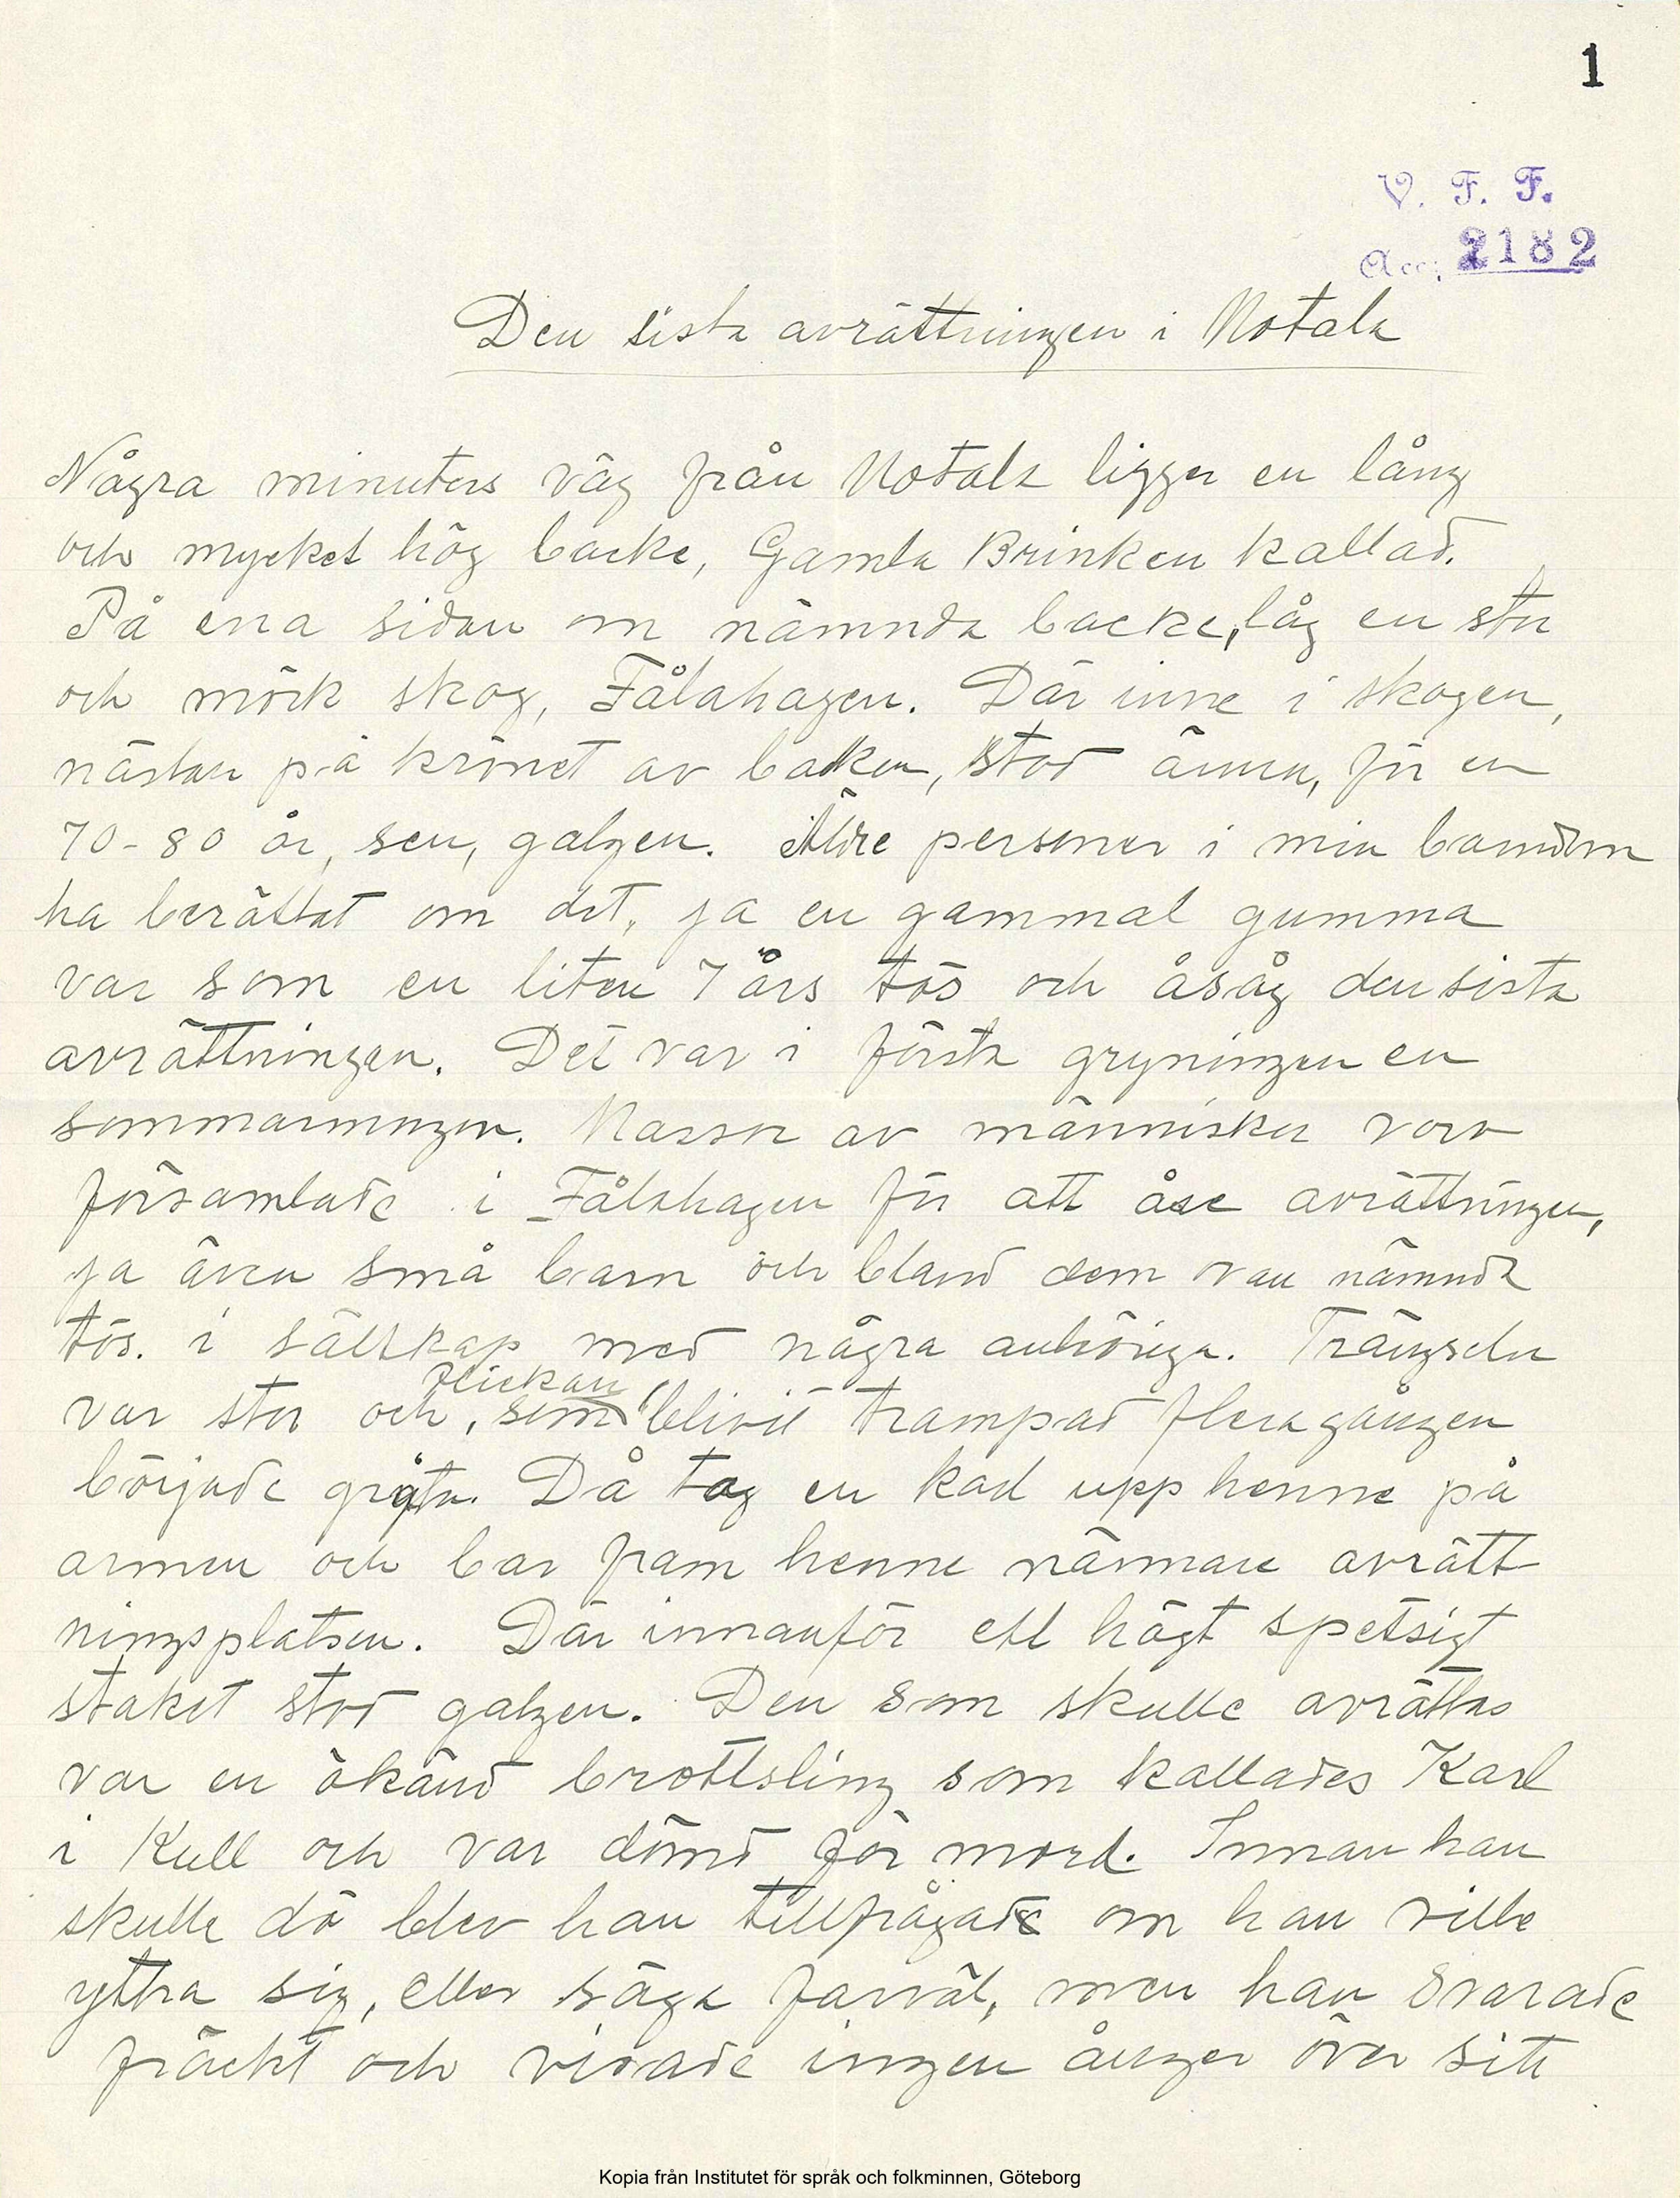 1
V. F. F.
Acc. 2182
Den sista avrättningen i Motala
Några minuters väg från Motala ligger en lång
och mycket hög backe, Gamla Brinken kallad.
På ena sidan om nämnda backe, låg en stor
och mörk skog, Fålahagen. Där inne i skogen,
nästan på krönet av backen, stod ännu, för en
70-80 år, sen, galgen. Äldre personer i min barndom
ha berättat om det, ja en gammal gumma
var som en liten 7 års tös och åsåg den sista
avrättningen. Det var i första gryningen en
sommarmorgon. Massor av människor voro
församlade i Fålahagen för att åse avrättningen,
ja även små barn och bland dem ovan nämnda
tös. i sällskap med några anhöriga. Trängseln
flickan
var stor och, som blivit trampad flera gången
började gråta. Då tog en karl upp henne på
armen och bar fram henne närmare avrätt
ningsplatsen. Där innanför ett högt spetsigt
staket stod galgen. Den som skulle avrättas
var en ökänd brottsling som kallades Karl
i Kull och var dömd för mord. Innan han
skulle dö blev han tillfrågade om han ville
yttra sig, eller säga farväl, men han svarade
fräckt och visade ingen ånger över sitt
Kopia från Institutet för språk och folkminnen, Göteborg